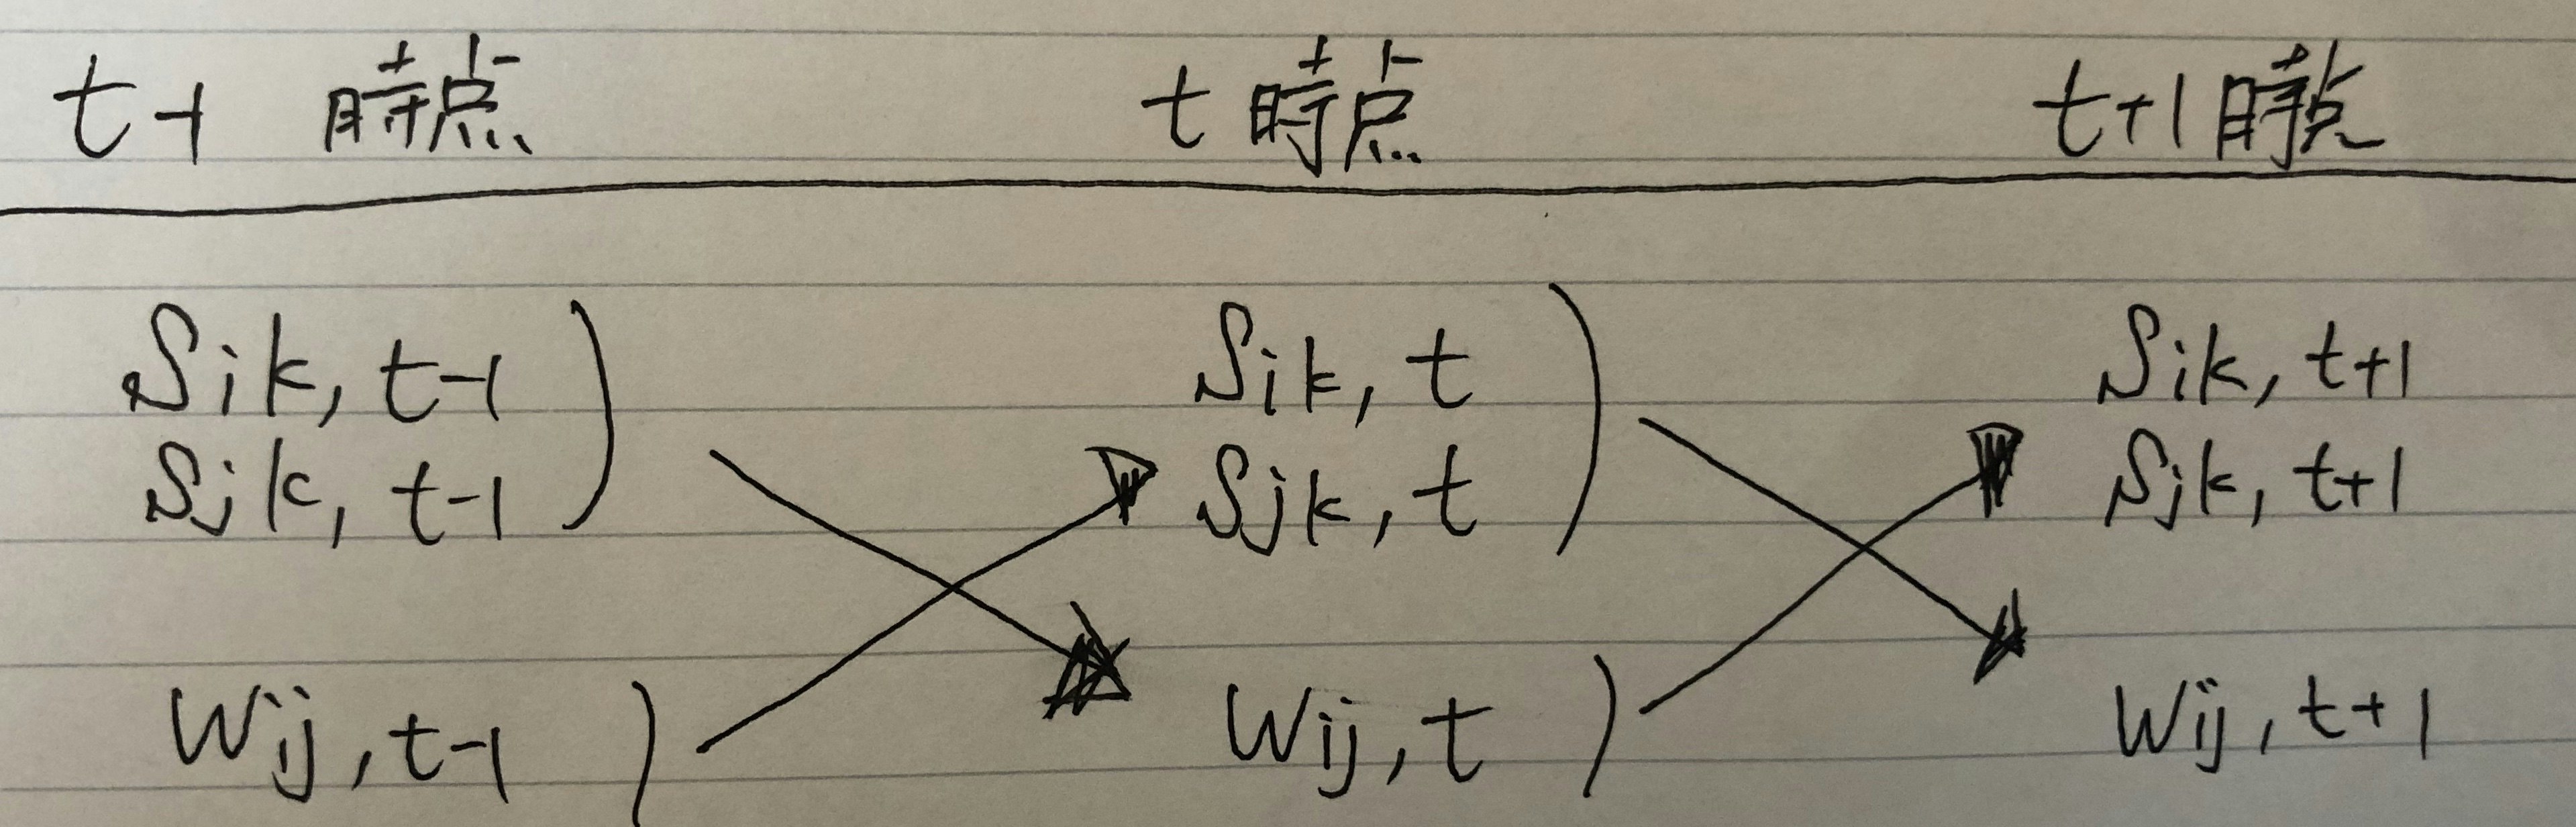 t-1 時点 t 時点 t+1 時点
Sik, t-1 Sik, t Sik, t+1
Sjk, t-1 Sjk, t Sjk, t+1
Wij, t-1 Wij, t Wij, t+1